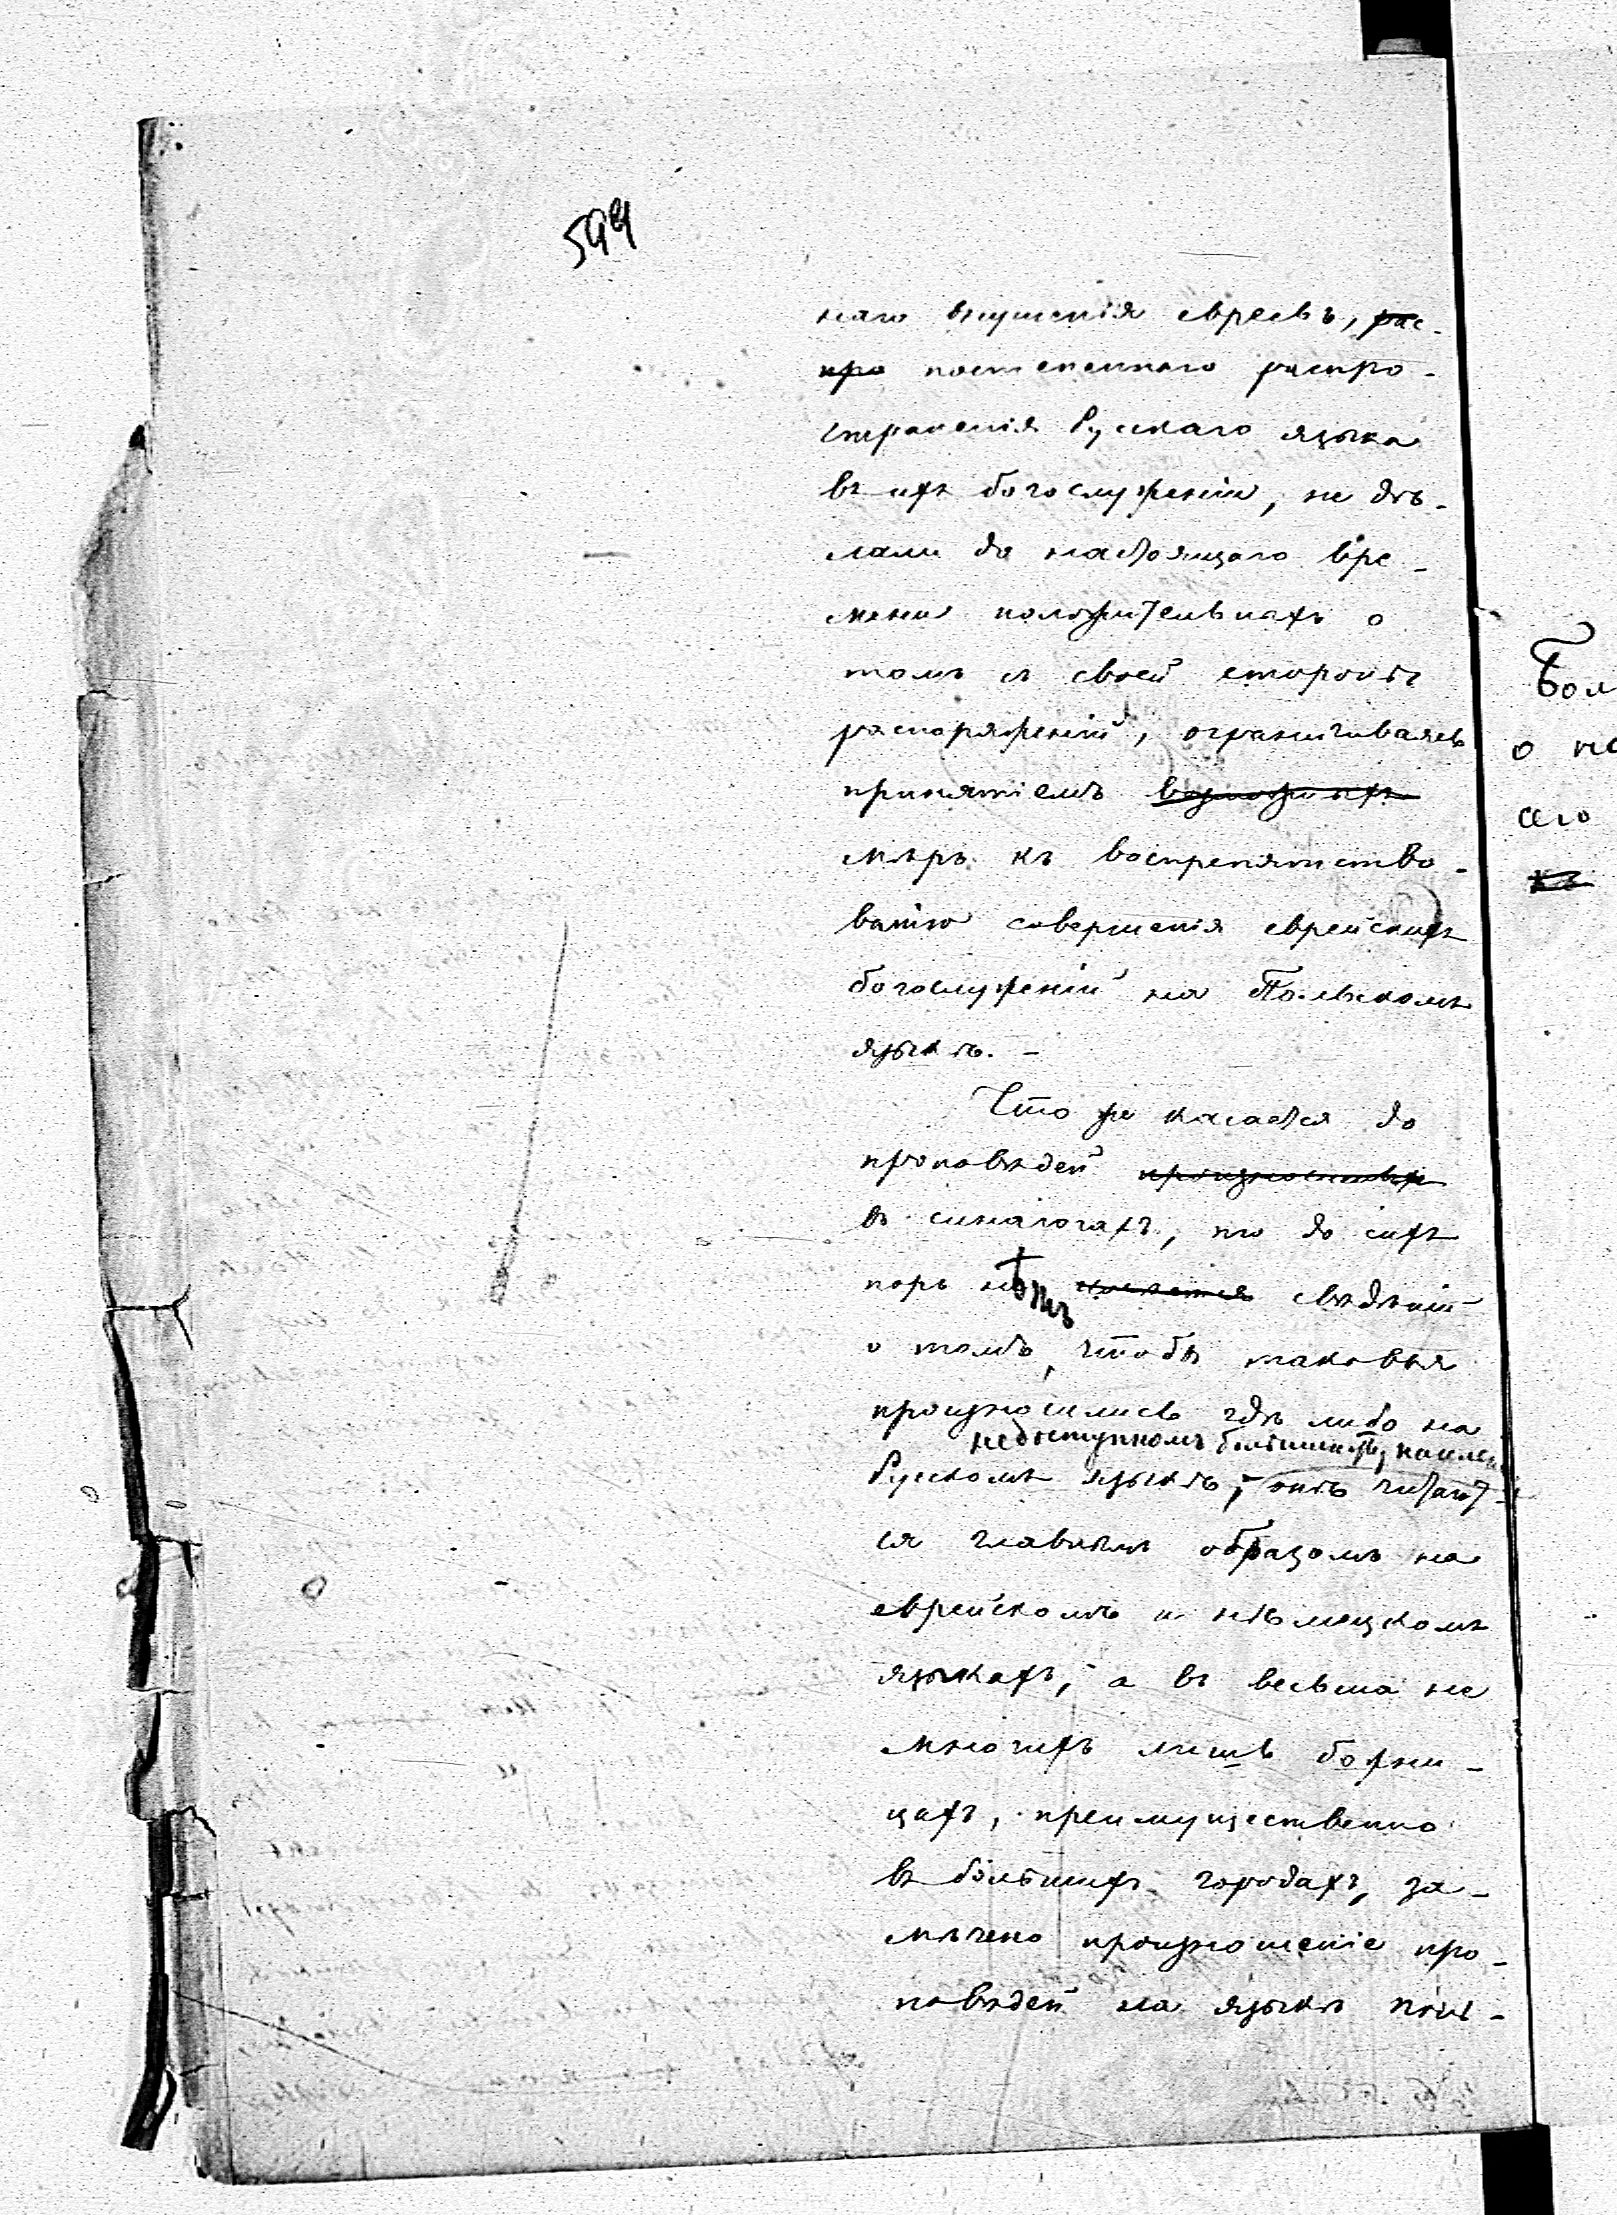 наго внушенія евреевъ, рас-
про постепеннаго распро-
страненія Рускаго языка
въ ихъ богослуженіи, не дѣ-
лали до настоящаго вре-
мени положительныхъ о
томъ съ своей стороны
распоряженій, ограничиваясь
принятіемъ возможныхъ
мѣръ къ воспрепятство-
ванію совершенія еврейскихъ
богослуженій на Польскомъ
языкѣ. -
Что же касается до
проповѣдей произносимыхъ
въ синагогахъ, то до сихъ
поръ нѣтъ имѣется свѣдѣній
о томъ, чтобы таковыя
произносились гдѣ либо на
недоступномъ большинству
Русскомъ языкѣ; онѣ читают-
ся главнымъ образомъ на
еврейскомъ и нѣмецкомъ
языкахъ, а въ весьма не
многихъ лишь божни-
цахъ, преимущественно
въ большихъ городахъ, за-
мѣчено произношеніе про-
повѣдей на языкѣ поль-
Бол
о не
сего
къ